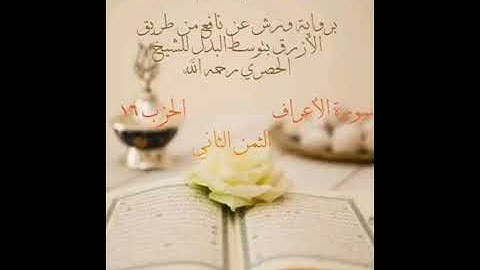 برواية ورش عن نافع من طريق
الأزرق بتوسط البدل للشيخ
الحصري رحمه الله
سورة الأعراف الحزب ١٦
الثمن الثاني